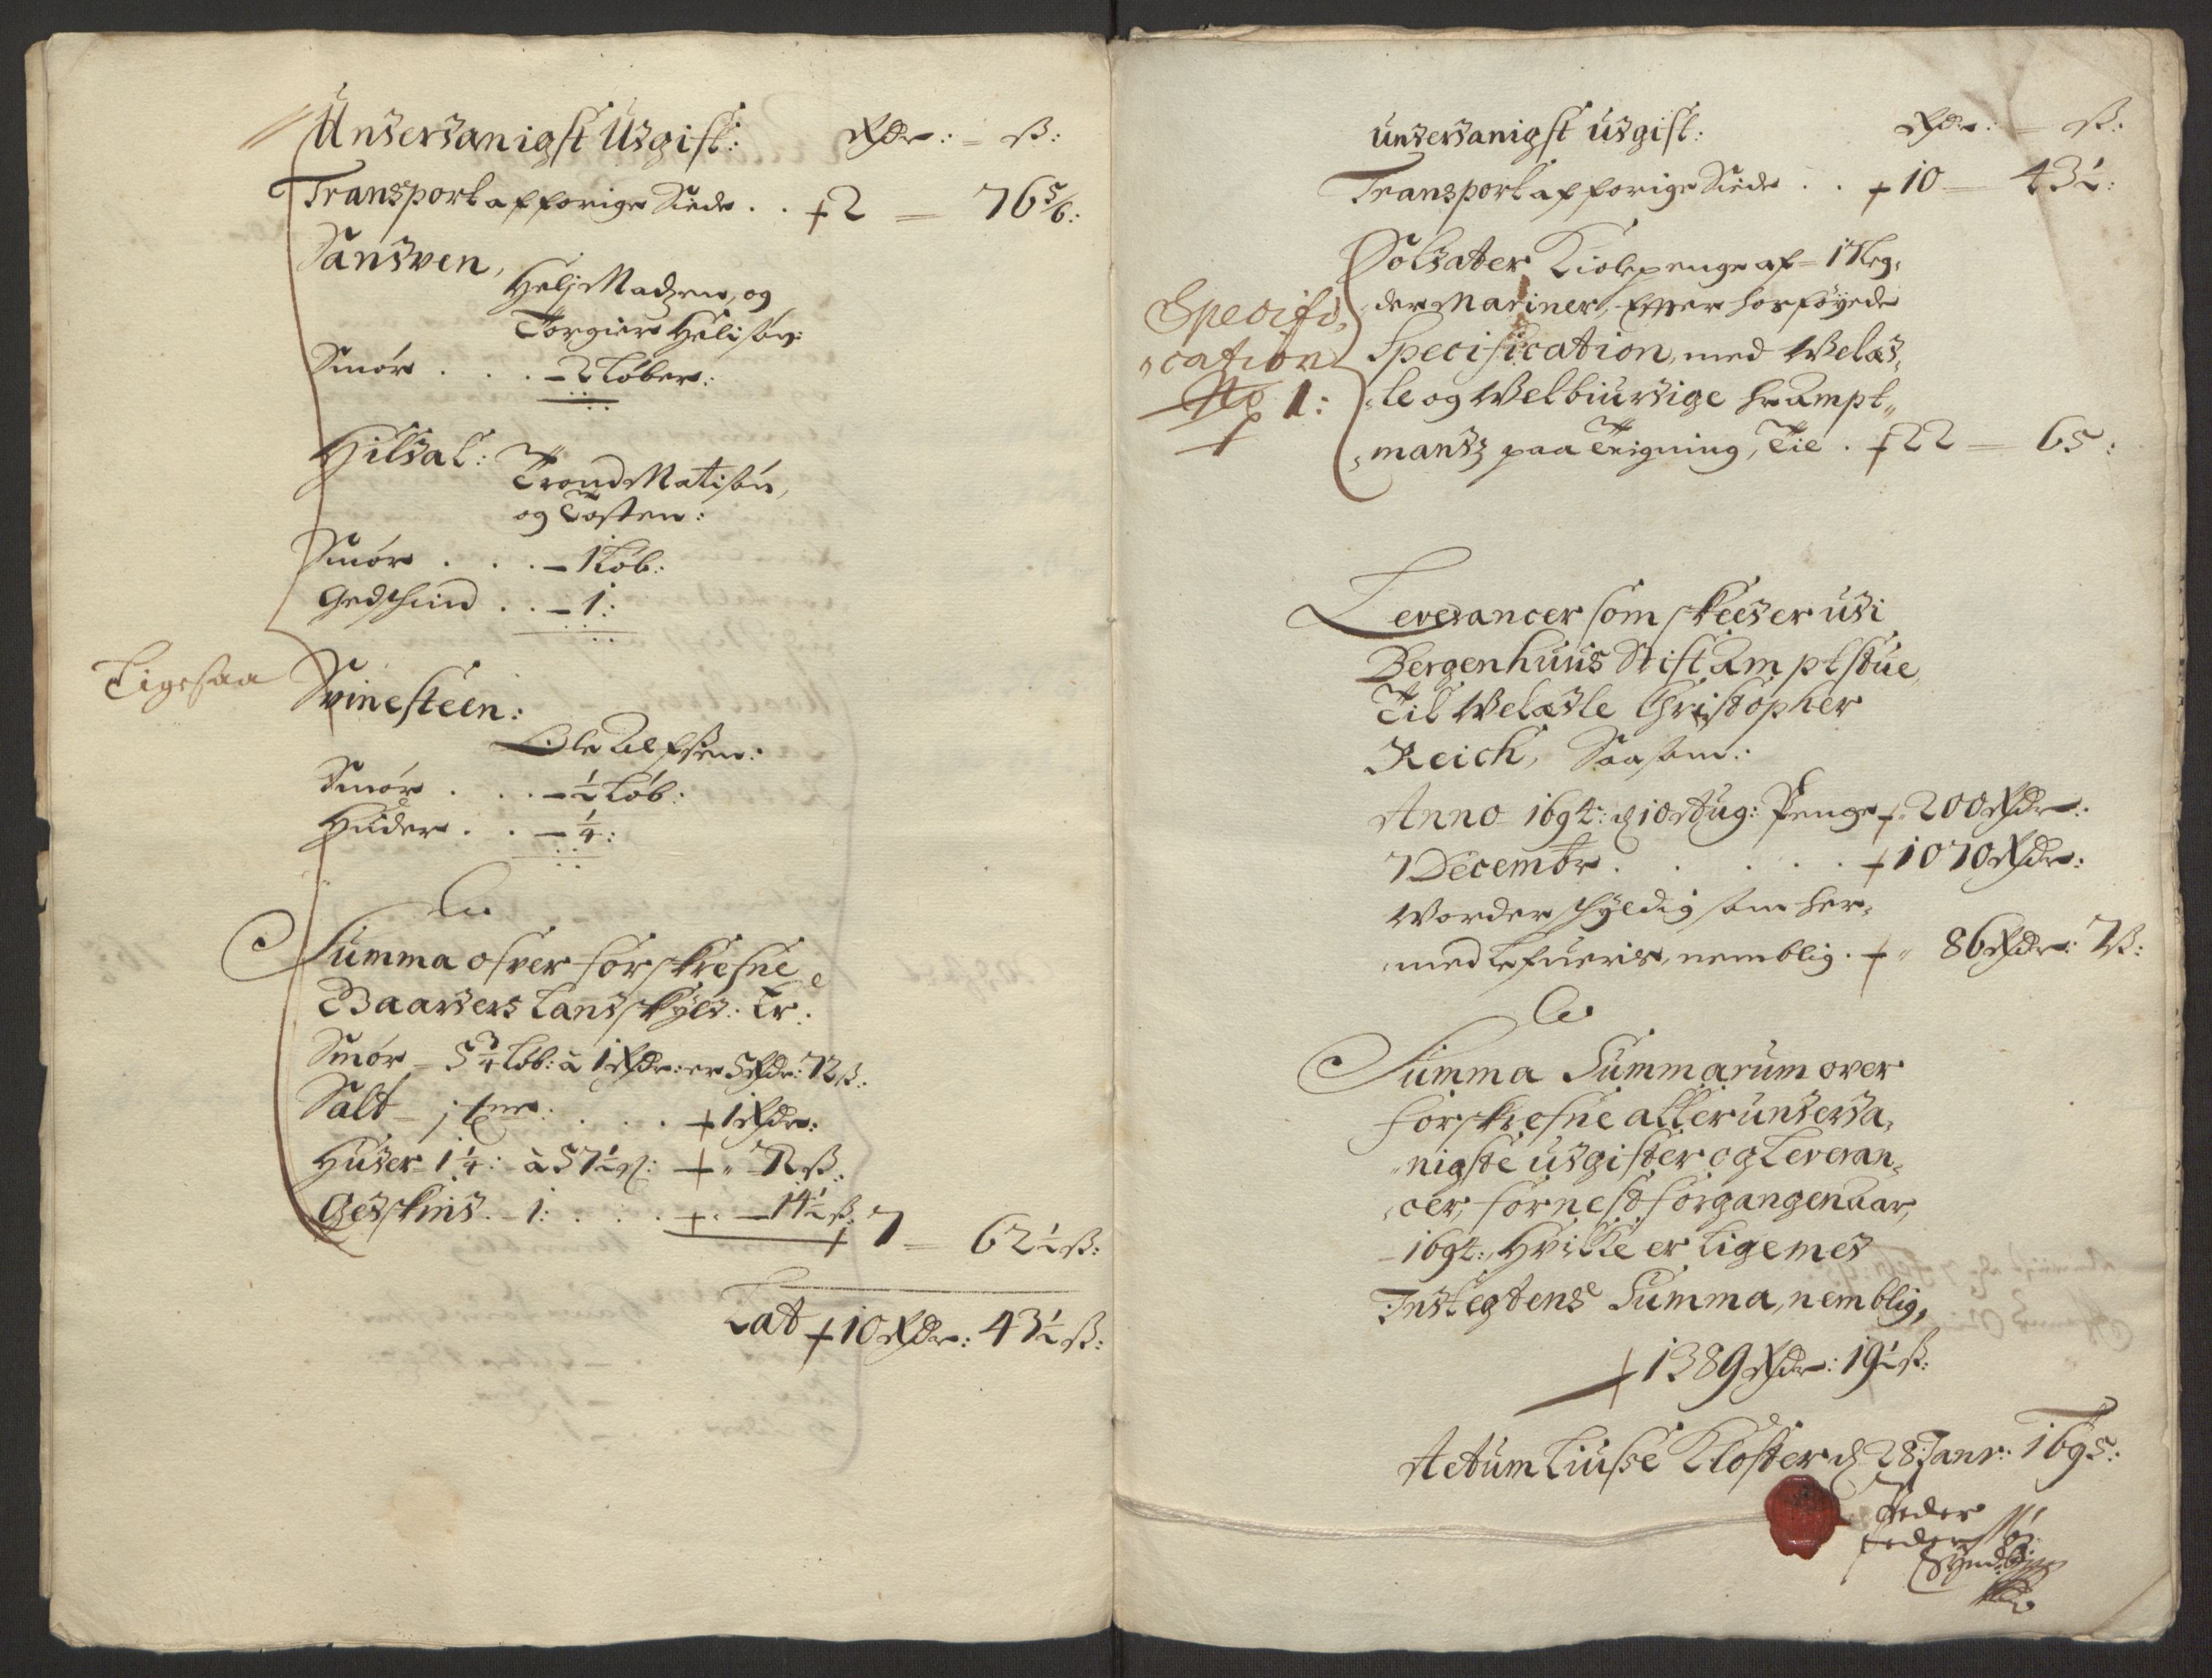 Underdanigst Udgift: Rdr: = ß:
Transport af forige Siede . . + 2 = 76 5/6:
Sandven,
Helj Madzen, og
Torgier Helisøn:
Smør . . . - 2 Løber:
Hildal:
Trond Matisøn,
og Tosten:
Smør . . . - 1 Løb:
Gedskind . . - 1:
Ligesaa
Svinesteen:
Ole Olefsen:
Smør . . . - ½ Løb:
Huder . . - ¼:
Summa ofver forskrefne
Baarders Landskyld: Er:
Smør - 5¾ Løb: à 1 Rdr: er 5 Rdr: 72 ß:
Salt - j tnr: . . . . + 1 Rdr:
Huder 1¼: à 57½ ß: + " 72 ß:
Gedskind. - 1: . . . + " - 14½ ß: + 7 = 62½ ß:
Lat + 10 Rdr: 43½ ß:
underdanigst udgift: Rdr: = ß:
Transport af forige Siede . . + 10 = 43½:
Soldater Kiolepenge af 17 Leg,
Specifi,
,der Mariner, Efter hosføyede
,cation
Specification, med Welæd,
No 1:
,le og Welbiurdige hr Ampt,,
,mandz paa Teigning, Til . + 22 = 65:
Leverancer som skeeder udi
Bergenhuus Stift Amptstue,
Til Welædle Christopher
Reich, Saasom:
Anno 1694: d 10 Aug: Penge + 200 Rdr:
7 Decembr . . . . . + 1070 Rdr:
Worder skyldig som her,
,med Lefueris, nemblig. + " 86 Rdr: 7 ß:
Summa Summarum over
forskrefne allerunderda,
,nigste udgifter og Leveran,
,cer, for nest forgangen Aar,
1694:, Hvilke er Ligemed
Indtegtens Summa, nemblig,
+ 1389 Rdr: 19½ ß:
Actum Liusse Kloster d 28 Janr: 1695:
Peder
Pedersøn